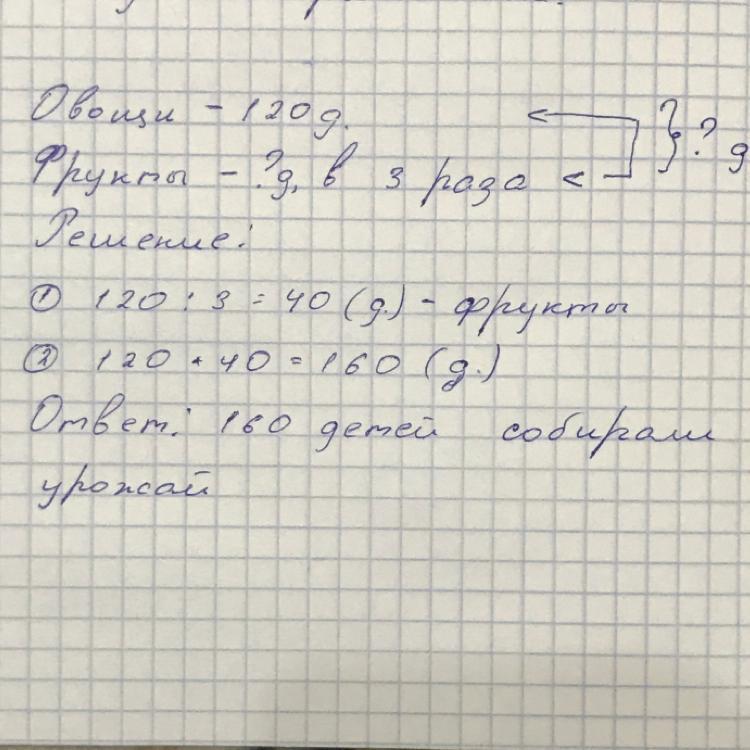 Овощи - 120 д.
Фрукты - ? д, в 3 раза < } ? д
Решение:
① 120 : 3 = 40 (д.) - фрукты
② 120 + 40 = 160 (д.)
Ответ: 160 детей собирали
урожай